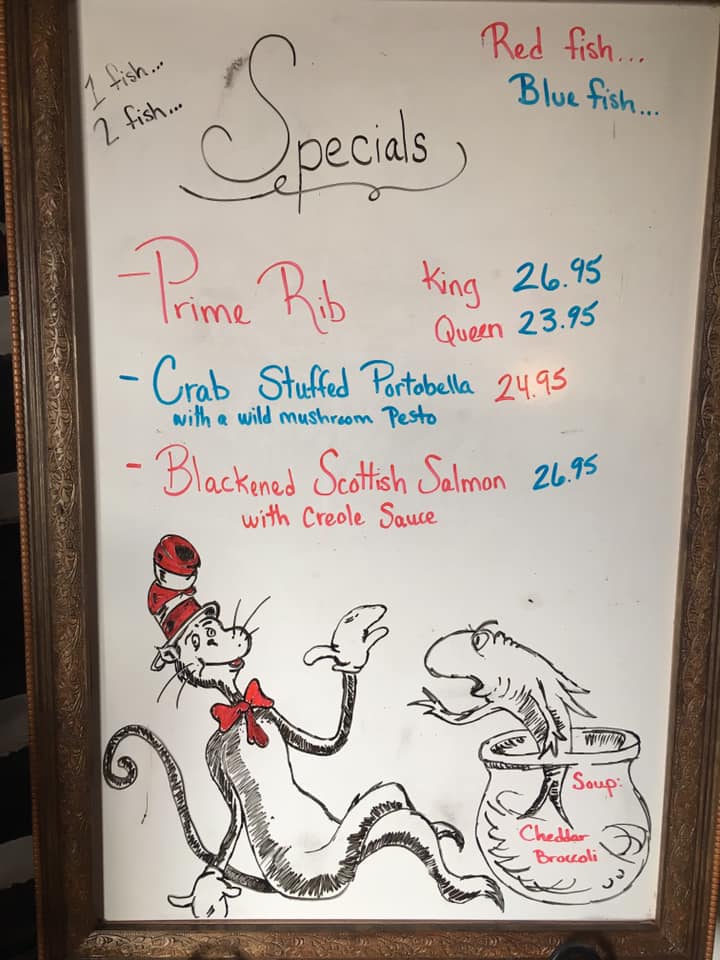 1 fish...
2 fish...
Red fish...
Blue fish...
Specials
- Prime Rib King 26.95
Queen 23.95
- Crab Stuffed Portobella 24.95
with a wild mushroom Pesto
- Blackened Scottish Salmon 26.95
with Creole Sauce
Soup:
Cheddar
Broccoli